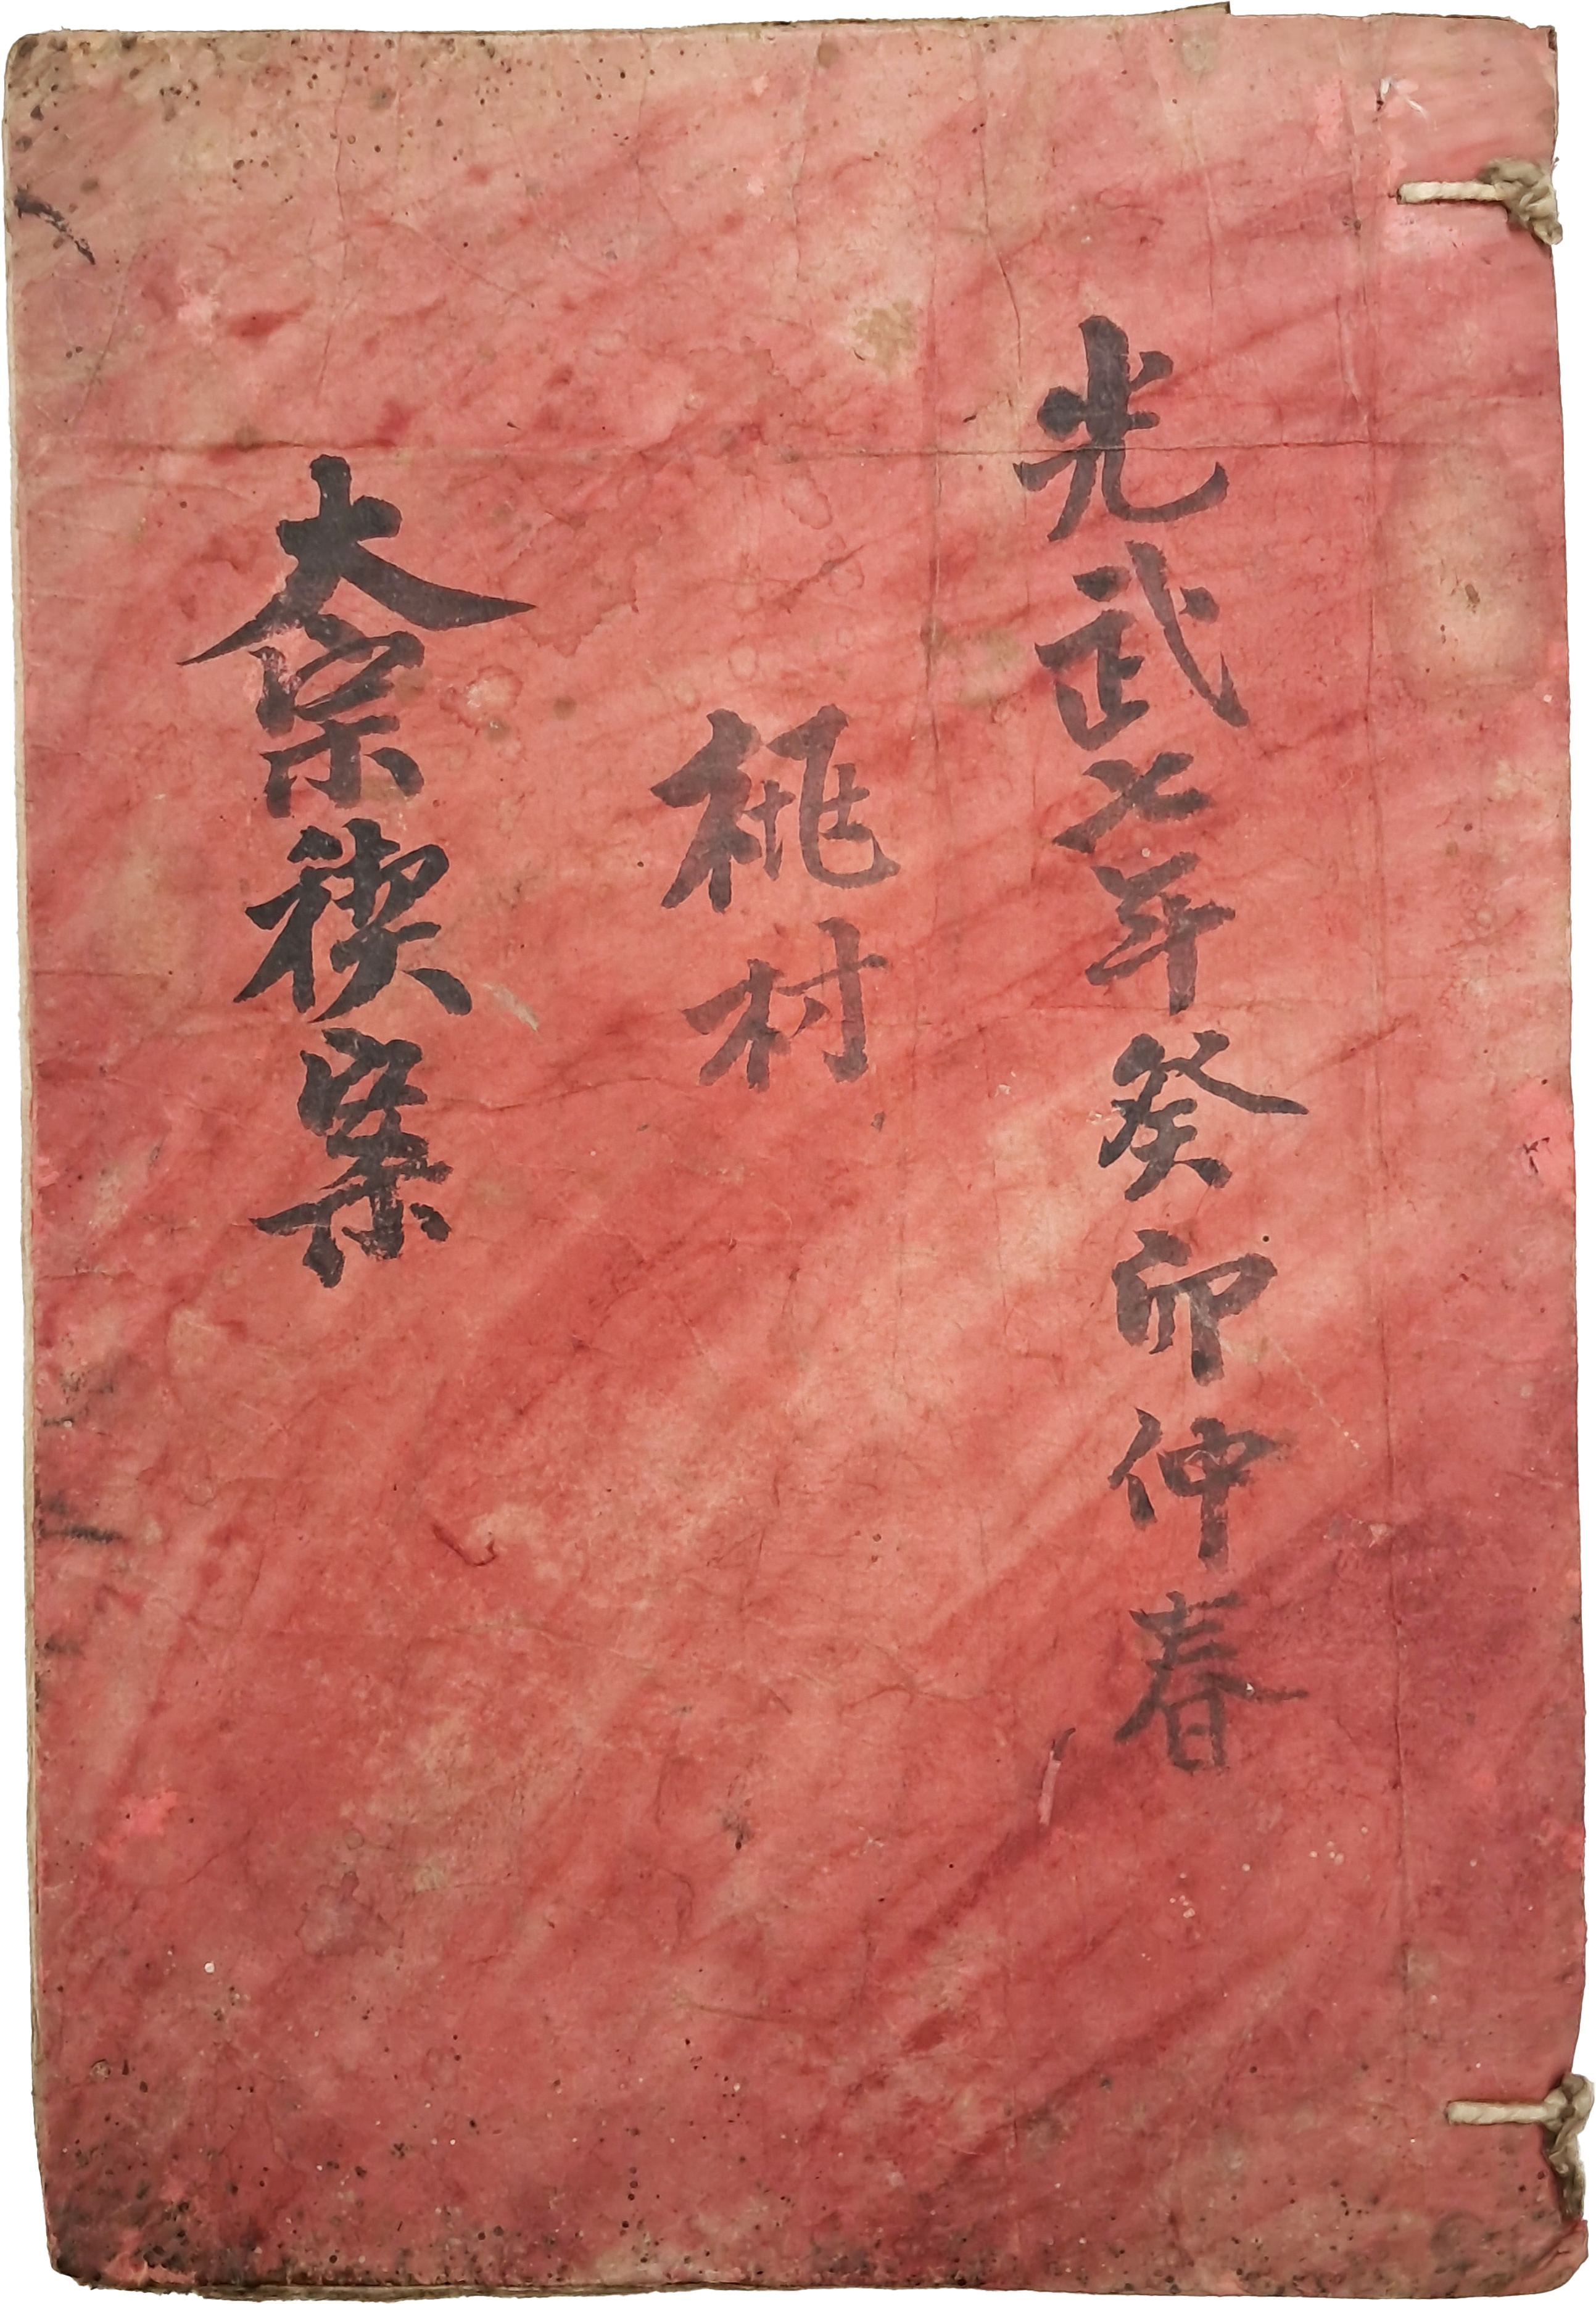 光武七年癸卯仲春
桃村
大宗禊案